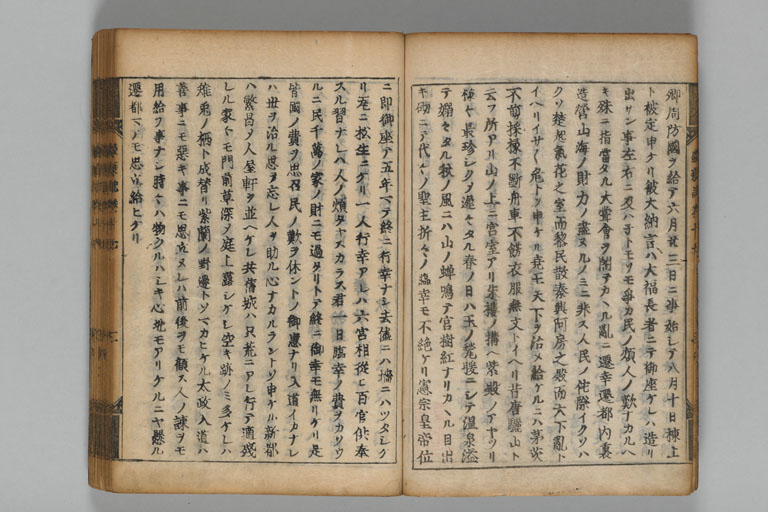 卿周防國ヲ給テ六月廿三日ニ事始シテ八月十日棟上
ト被定申ケリ彼大納言ハ大福長者ニテ御座ケレハ造リ
出サン事左右ニ及ハ子トモソモ爭カ民ノ煩人ノ歎ナカルヘ
キ殊ニ指當タル大嘗會ヲ閣テカヽル亂ニ遷幸遷都内裏
造營山海ノ財力ノ盡ヌルノミニ非ス人民ノ侘際イクソハ
クソ楚起氣花之室而黎民散秦興阿房之殿而天下亂ト
イヘリイサヽ危トソ申ケル尭王天下ヲ治メ給ケルニハ茅茨
不剪採椽不斷舟車不餝衣服無文トイヘリ昔唐驪山ト
云フ所アリ山ノ上ニ宮室アリ朱樓ノ構ヘ紫殿ノアヤツリ
ヤ最珍シクソ遲々タル春ノ日ハ玉ノ甃暖ニシテ温泉溢
テ嫋々タル秋ノ風ニハ山ノ蝉鳴テ宮樹紅ナリカヽル目出
キ砌ニテ代々ノ聖主折々ノ臨幸モ不絶ケリ憲宗皇帝位
ニ即御座テ五年マテ終ニ行幸ナシ去儘ニハ墻ニハツタシケ
リ甍ニ松生ニケリ一人行幸アレハ六宮相從ヒ百官供奉
スル習ナレハ人ノ煩タヤスカラス君一日臨幸ノ費ヲカソフ
ルニ民千萬ノ家ノ財ニモ過タリトテ終ニ御幸モ無リケリ是
皆國ノ費ヲ思召民ノ歎ヲ休ントノ御惠ナリ入道イカナレ
ハ世ヲ治ル思ヲ忘レ人ヲ助ル心ナカルラントソ申ケル新都
ハ繁昌ノ人屋軒ヲ並ヘケレ共舊城ハ只荒ニアレ行テ適殘
レル家トモ門前草深ノ庭上露シケレ空キ跡ノミ多ケレハ
雉兎ノ栖ト成替リ紫蘭ノ野邊トソマカヒケル太政入道ハ
善事ニモ惡キ事ニモ思立ヌレハ前後ヲモ顧ス人ノ諫ヲモ
用給フ事ナシ時々ハ物クルハシキ心地モアリケルニヤ懸ル
遷都マテモ思立給ヒケリ